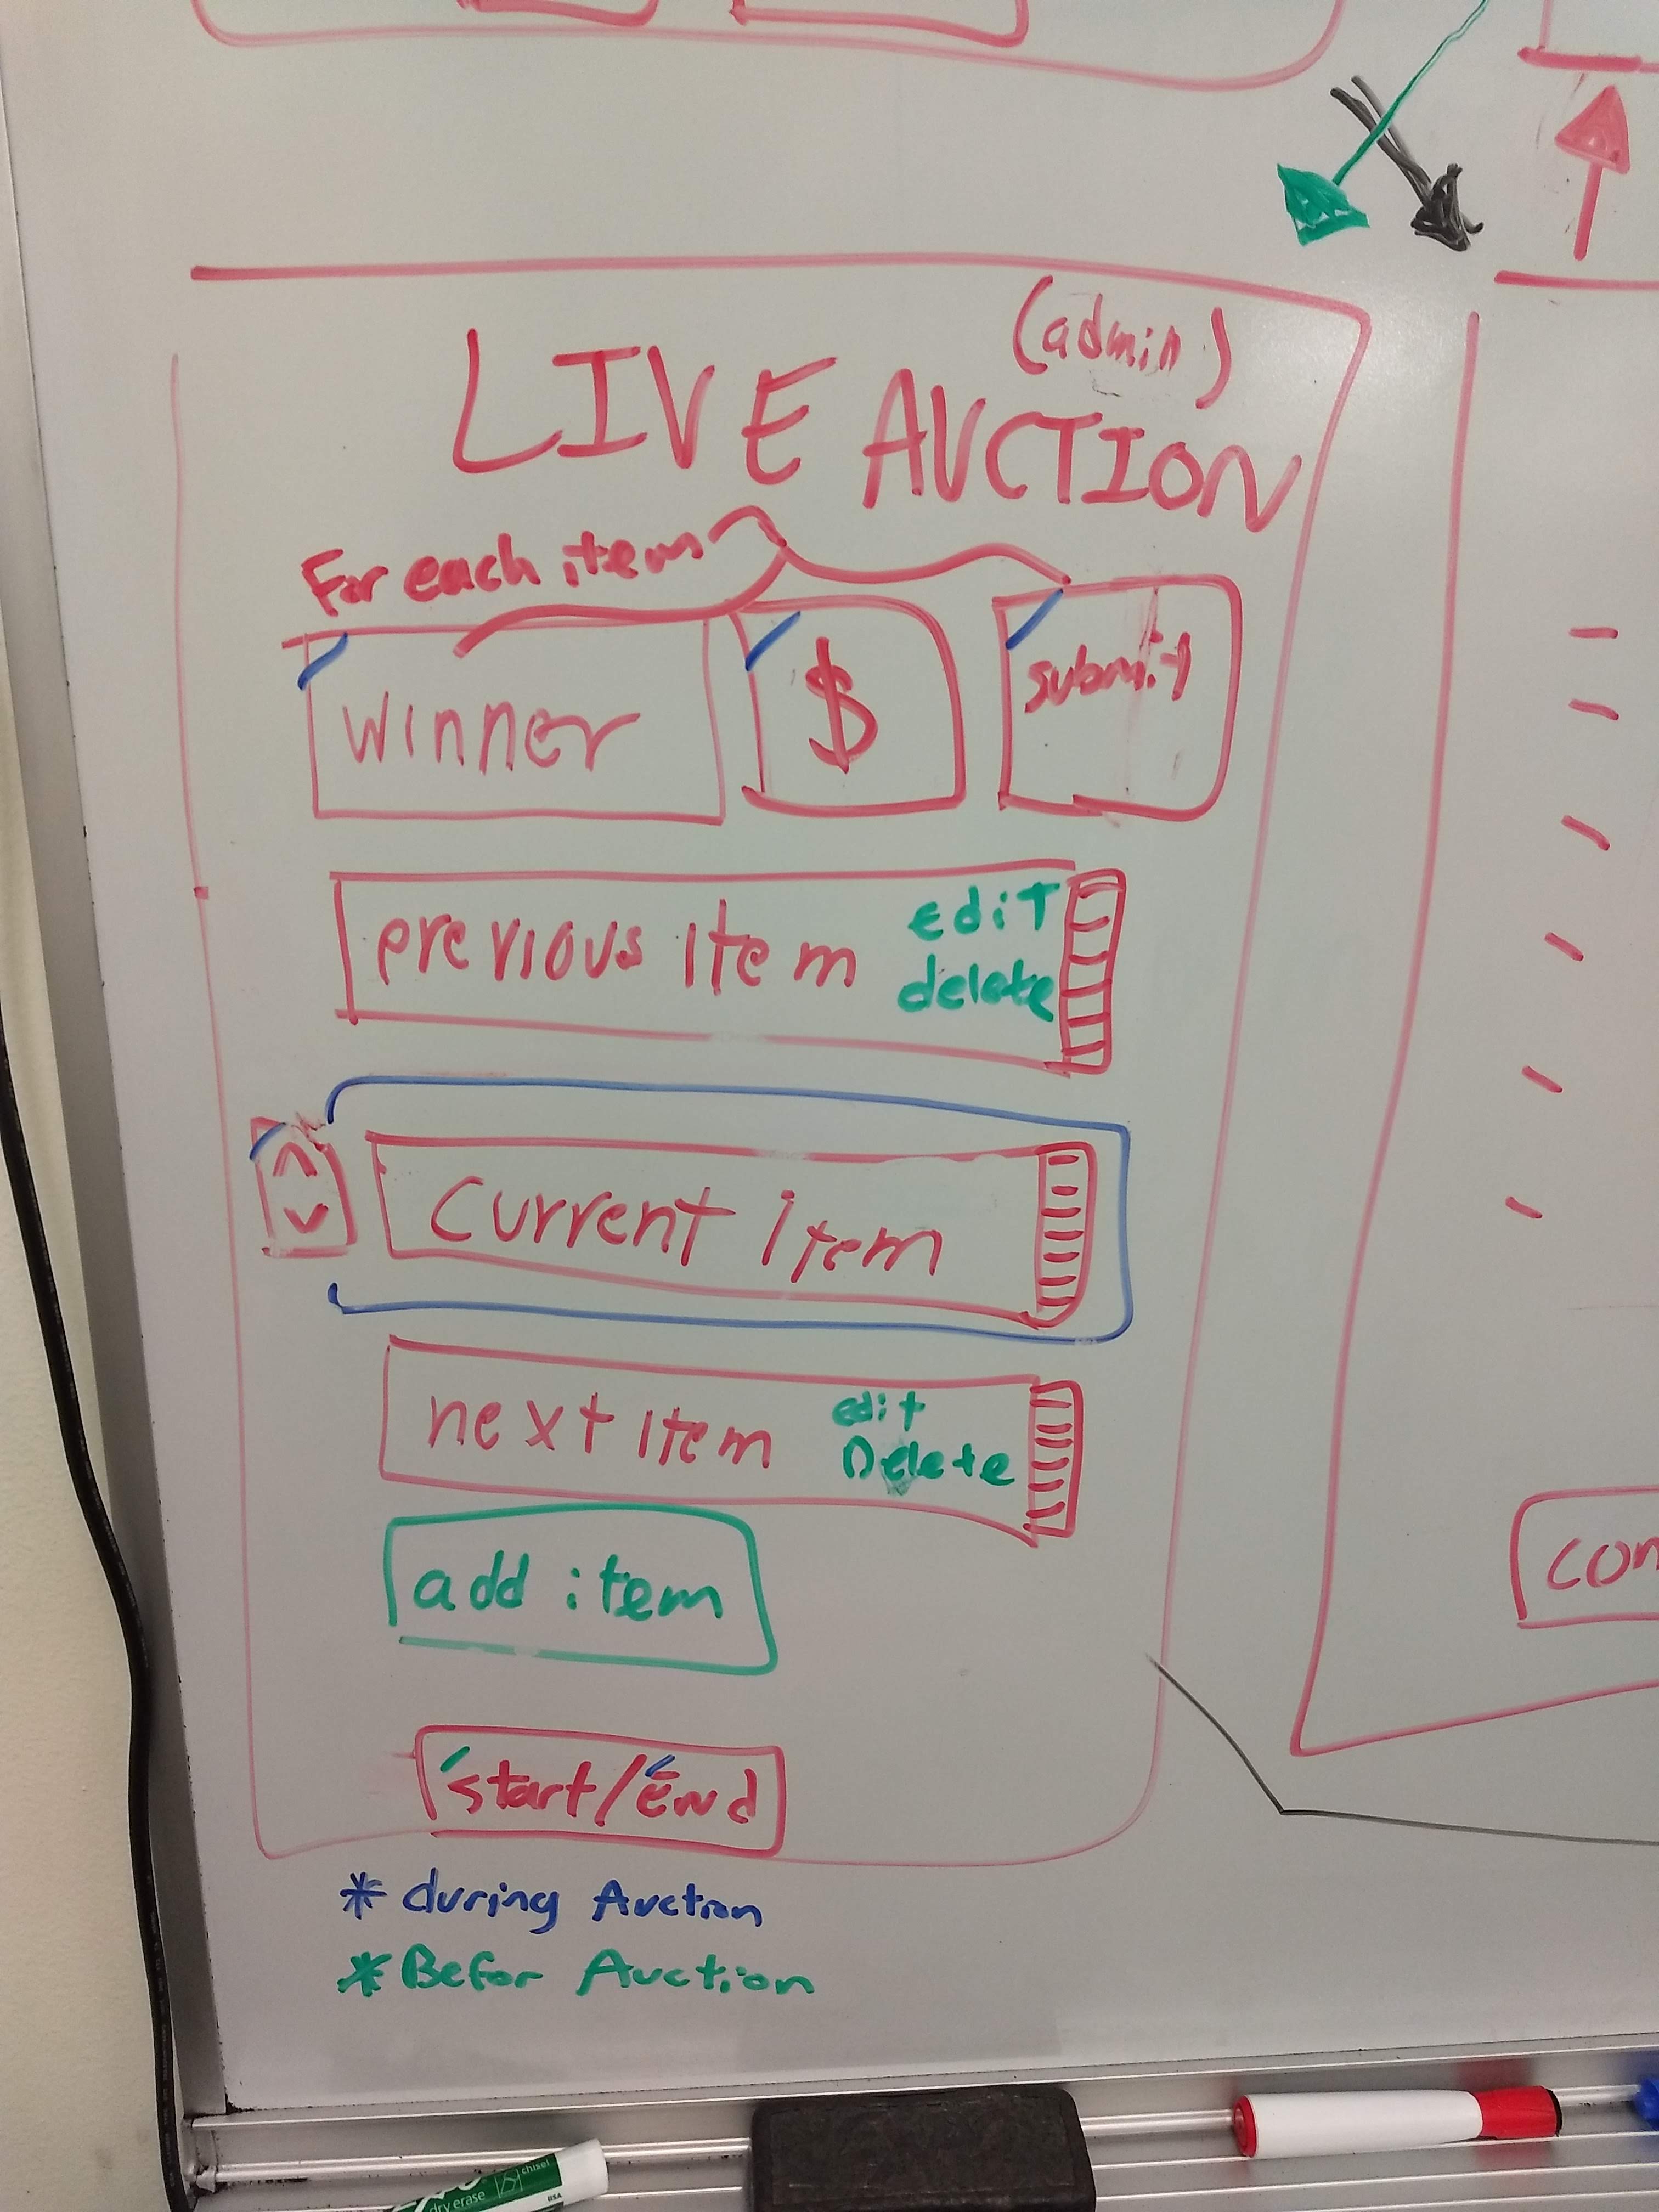 (admin)
LIVE AUCTION
For each item
winner
$
submit
previous item
edit
delete
current item
next item
edit
Delete
add item
start/end
* during Auction
* Befor Auction
con
chisel
dry erase
USA